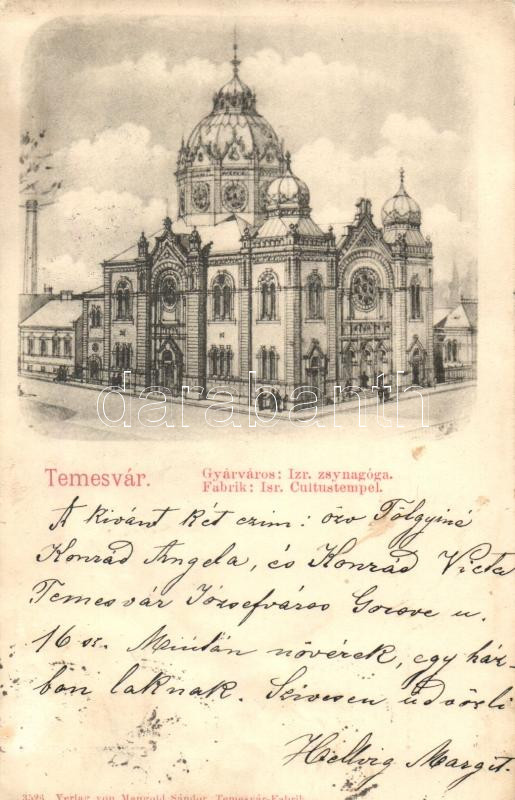 darabanth
Temesvár.
Gyárváros: Izr. zsynagóga.
Fabrik: Isr. Cultustempel.
A kivánt két czim: özv Tölgyiné
Konrád Angela, és Konrád Victa
Temesvár Józsefváros Gorove u.
16 sz. Miután nővérek, egy ház-
ban laknak. Szivesen üdvözli
Hellvig Margit.
3526 Verlag von Mangold Sándor, Temesvár-Fabrik